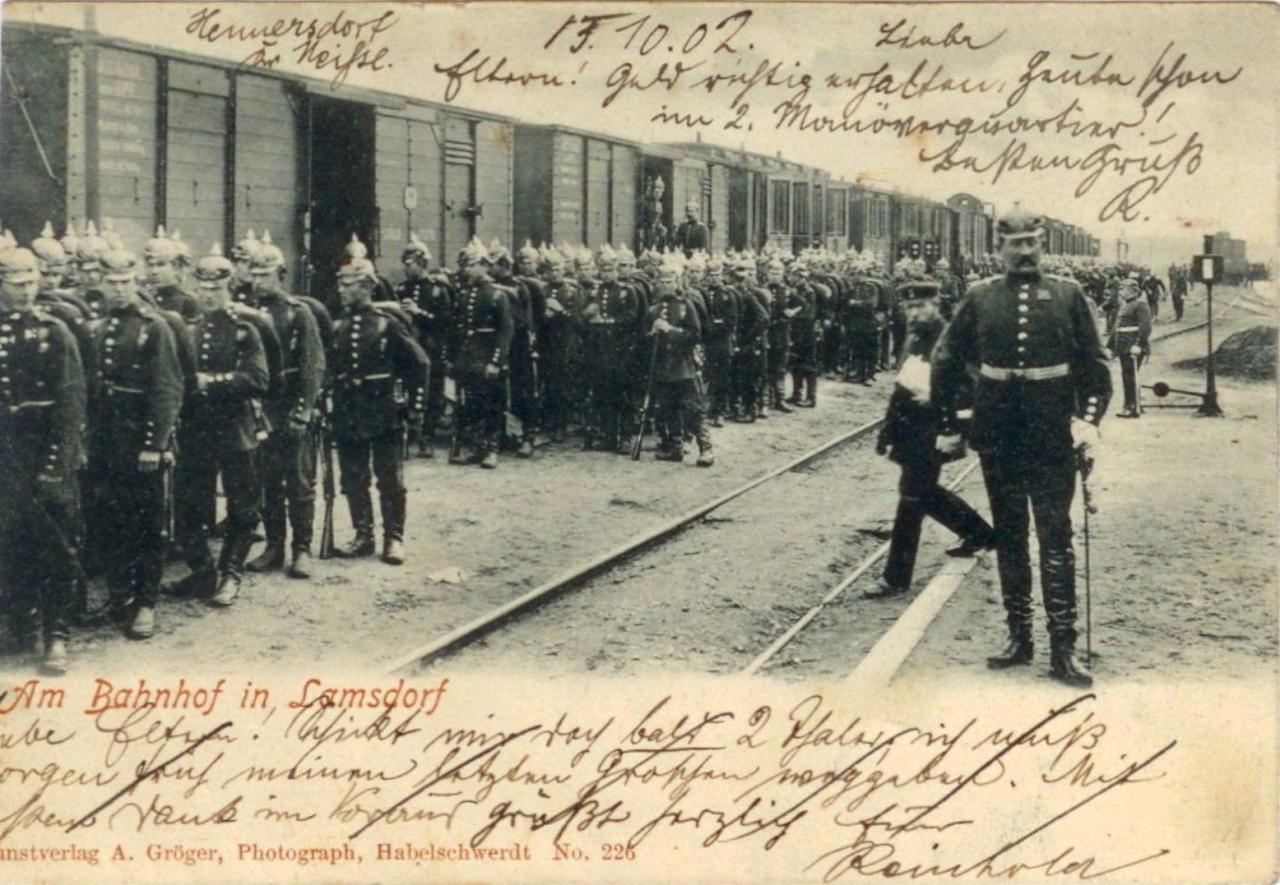 Hennersdorf 15.10.02. Liebe
Kr. Neiße. Eltern! Geld richtig erhalten, Heute schon
im 2. Manöverquartier!
Besten Gruß
R.
Am Bahnhof in Lamsdorf
ebe Eltern! Schickt mir doch bald 2 Thaler, ich muß
orgen früh meinen letzten Groschen weggeben. Mit
Dank im Voraus grüßt herzlich Euer
Reinhold
unstverlag A. Gröger, Photograph, Habelschwerdt No. 226